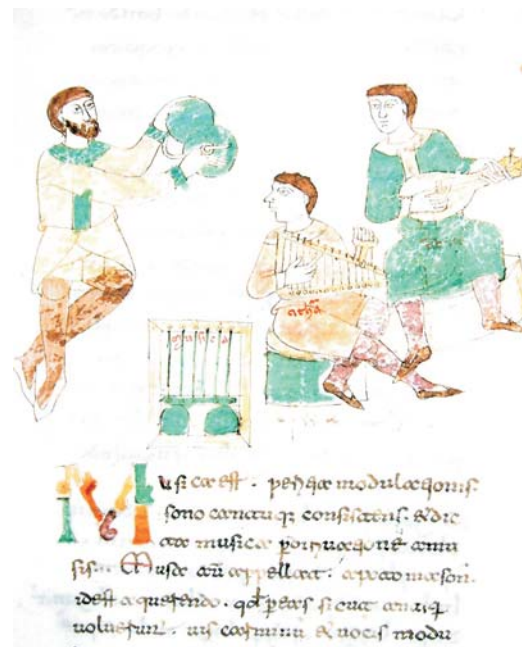 musica
Musica est. peritia modulationis.
sono cantuq; consistens. & dic
ta musica amu
sis. Muse appellate.
idest aquerendo. qd p eas sicut antiq
uoluerunt. uis carminu & uocis modu